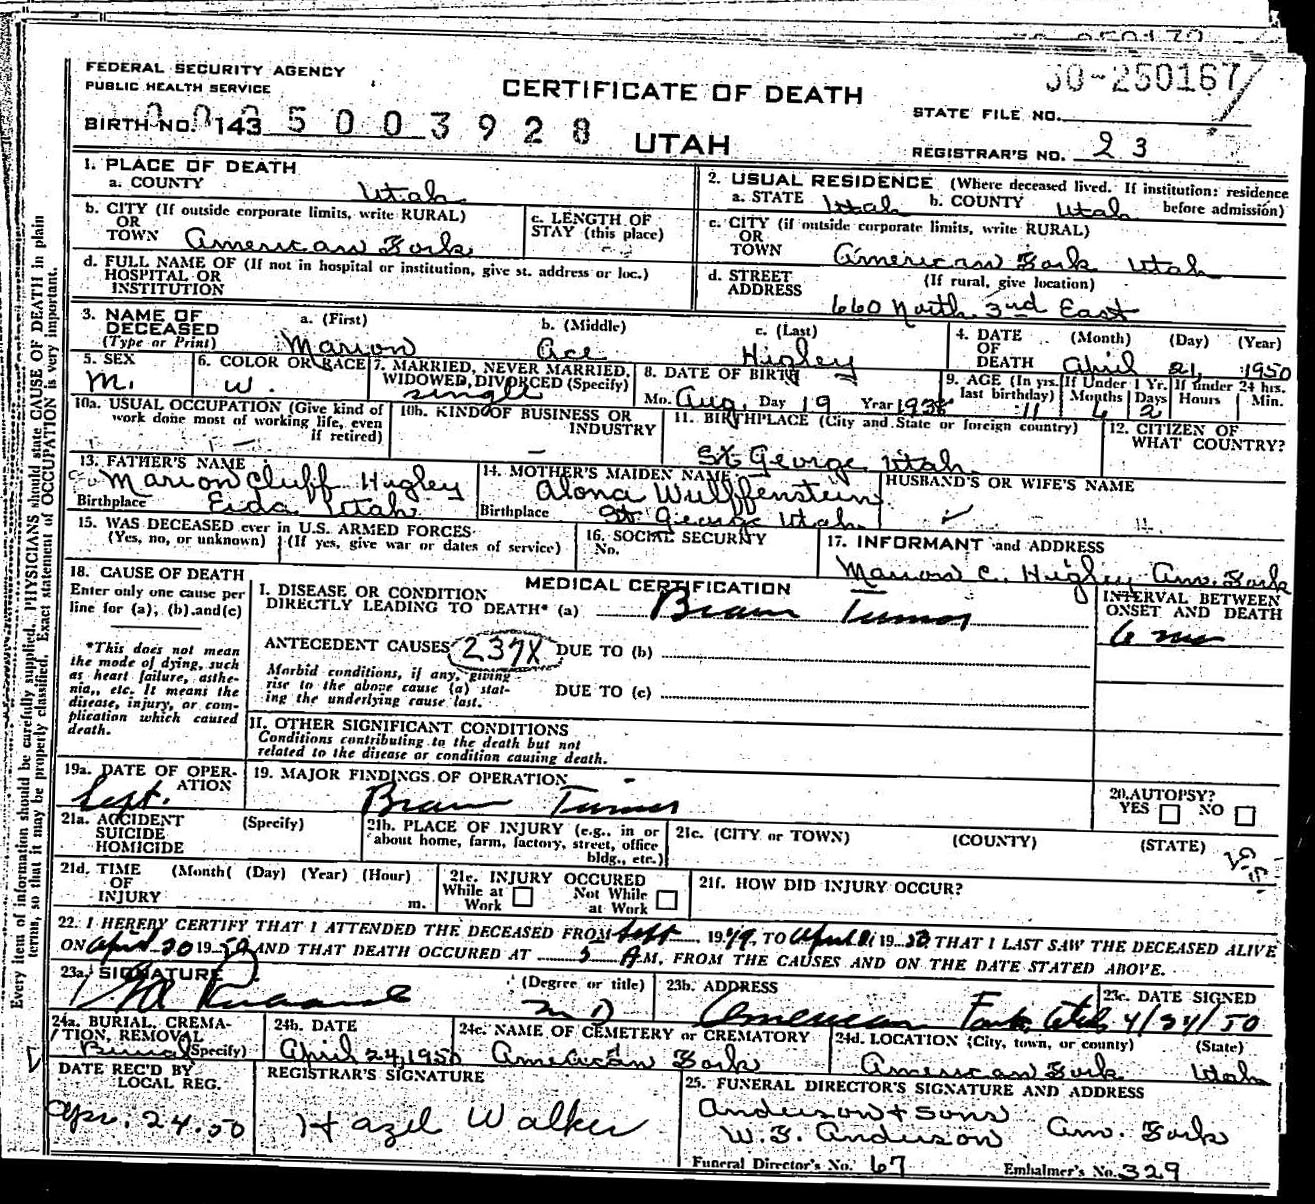 FEDERAL SECURITY AGENCY
PUBLIC HEALTH SERVICE
CERTIFICATE OF DEATH
50-250167
STATE FILE NO.
BIRTH NO. 143 5003928
UTAH
REGISTRAR'S NO. 23
1. PLACE OF DEATH
a. COUNTY Utah
2. USUAL RESIDENCE (Where deceased lived. If institution: residence before admission)
a. STATE Utah b. COUNTY Utah
b. CITY (If outside corporate limits, write RURAL)
OR
TOWN American Fork
c. LENGTH OF
STAY (this place)
c. CITY (if outside corporate limits, write RURAL)
OR
TOWN American Fork Utah
d. FULL NAME OF (If not in hospital or institution, give st. address or loc.)
HOSPITAL OR
INSTITUTION
d. STREET (If rural, give location)
ADDRESS 660 North 3rd East
3. NAME OF
DECEASED
(Type or Print)
a. (First) b. (Middle) c. (Last)
Marion Ace Higley
4. DATE (Month) (Day) (Year)
OF
DEATH April 21, 1950
5. SEX M.
6. COLOR OR RACE W.
7. MARRIED, NEVER MARRIED,
WIDOWED, DIVORCED (Specify)
single
8. DATE OF BIRTH
Mo. Aug. Day 19 Year 1938
9. AGE (In yrs. last birthday) 11
If Under 1 Yr. Months Days 2
If under 24 hrs. Hours Min.
10a. USUAL OCCUPATION (Give kind of
work done most of working life, even
if retired)
10b. KIND OF BUSINESS OR
INDUSTRY
11. BIRTHPLACE (City and State or foreign country)
St. George Utah
12. CITIZEN OF
WHAT COUNTRY?
13. FATHER'S NAME
Marion Cluff Higley
Birthplace Utah
14. MOTHER'S MAIDEN NAME
Alona Wulffenstein
Birthplace St. George Utah
HUSBAND'S OR WIFE'S NAME
15. WAS DECEASED ever in U.S. ARMED FORCES
(Yes, no, or unknown) (If yes, give war or dates of service)
16. SOCIAL SECURITY
No.
17. INFORMANT and ADDRESS
Marion C. Higley Am. Fork
18. CAUSE OF DEATH
Enter only one cause per
line for (a), (b) and (c)
*This does not mean
the mode of dying, such
as heart failure, asthe-
nia,, etc. It means the
disease, injury, or com-
plication which caused
death.
MEDICAL CERTIFICATION
I. DISEASE OR CONDITION
DIRECTLY LEADING TO DEATH* (a) Brain Tumor
INTERVAL BETWEEN
ONSET AND DEATH
6 mo
ANTECEDENT CAUSES 237X DUE TO (b)
Morbid conditions, if any, giving
rise to the above cause (a) stat-
ing the underlying cause last.
DUE TO (c)
II. OTHER SIGNIFICANT CONDITIONS
Conditions contributing to the death but not
related to the disease or condition causing death.
19a. DATE OF OPER-
ATION
Sept.
19. MAJOR FINDINGS OF OPERATION
Brain Tumor
20. AUTOPSY?
YES NO
21a. ACCIDENT (Specify)
SUICIDE
HOMICIDE
21b. PLACE OF INJURY (e.g., in or
about home, farm, factory, street, office
bldg., etc.)
21c. (CITY or TOWN) (COUNTY) (STATE)
21d. TIME (Month( (Day) (Year) (Hour)
OF
INJURY m.
21e. INJURY OCCURED
While at Work Not While at Work
21f. HOW DID INJURY OCCUR?
22. I HEREBY CERTIFY THAT I ATTENDED THE DECEASED FROM Sept 1949, TO April 21 1950, THAT I LAST SAW THE DECEASED ALIVE
ON April 20 1950 AND THAT DEATH OCCURED AT 5 A M, FROM THE CAUSES AND ON THE DATE STATED ABOVE.
23a. SIGNATURE (Degree or title)
M D
23b. ADDRESS
American Fork, Utah
23c. DATE SIGNED
4/24/50
24a. BURIAL, CREMA-
TION, REMOVAL
Burial (Specify)
24b. DATE
April 24, 1950
24c. NAME OF CEMETERY or CREMATORY
American Fork
24d. LOCATION (City, town, or county) (State)
American Fork Utah
DATE REC'D BY
LOCAL REG.
Apr. 24. 50
REGISTRAR'S SIGNATURE
Hazel Walker
25. FUNERAL DIRECTOR'S SIGNATURE AND ADDRESS
Anderson & Sons
W. F. Anderson Am. Fork
Funeral Director's No. 67 Embalmer's No. 329
Every item of information should be carefully supplied. PHYSICIANS should state CAUSE OF DEATH in plain
terms, so that it may be properly classified. Exact statement of OCCUPATION is very important.